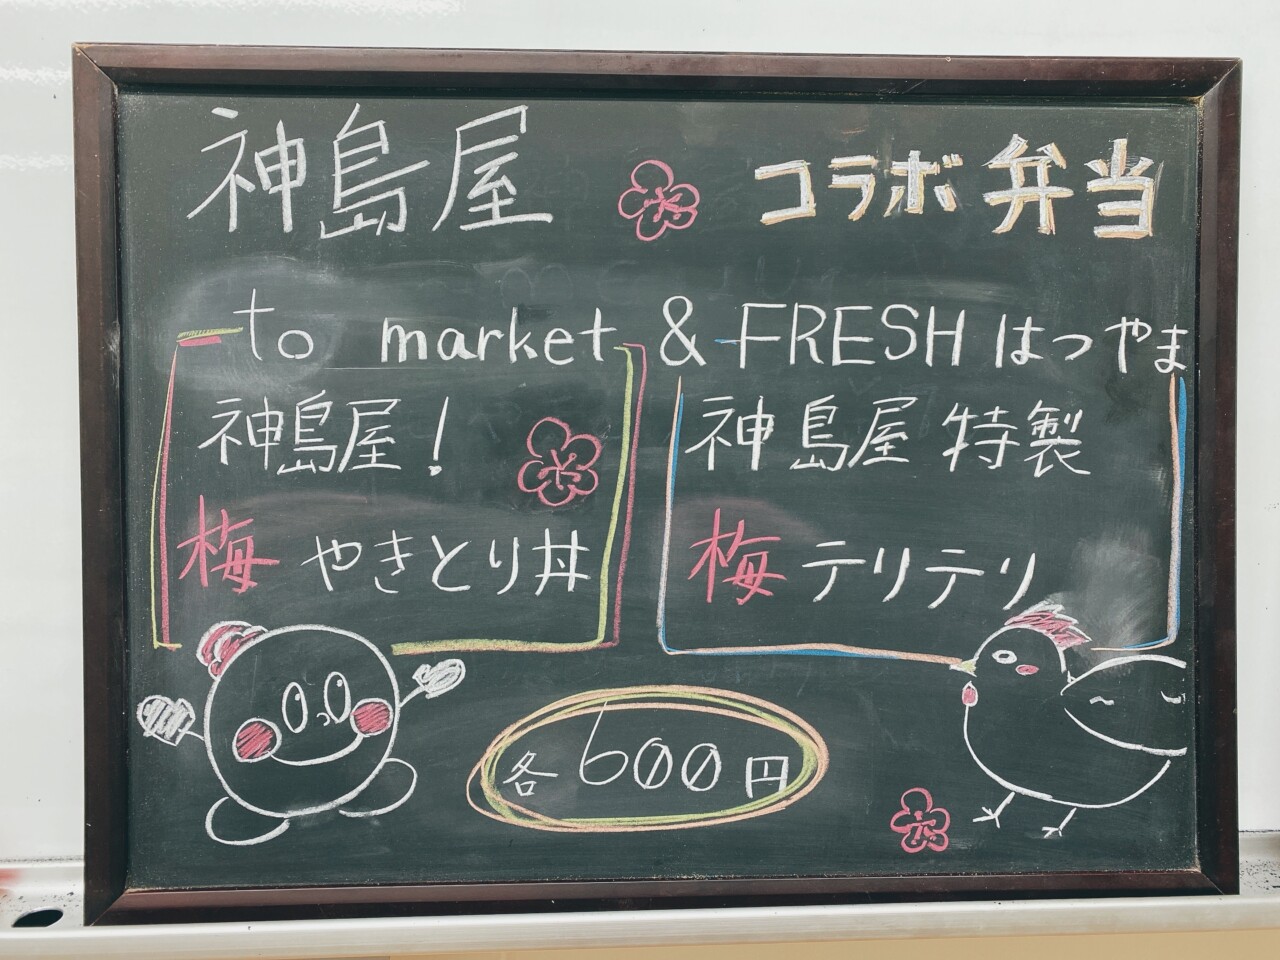 神島屋 コラボ弁当
to market & FRESH はつやま
神島屋!
梅 やきとり丼
神島屋 特製
梅 テリテリ
各 600円